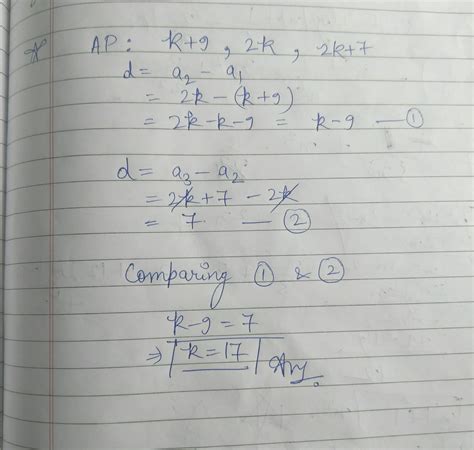 AP: k+9, 2k, 2k+7
d = a₂ - a₁
= 2k-(k+9)
= 2k-k-9 = k-9 — ①
d = a₃ - a₂
= 2k+7 - 2k
= 7 — ②
Comparing ① & ②
k-9=7
⇒ k=17 Ans.